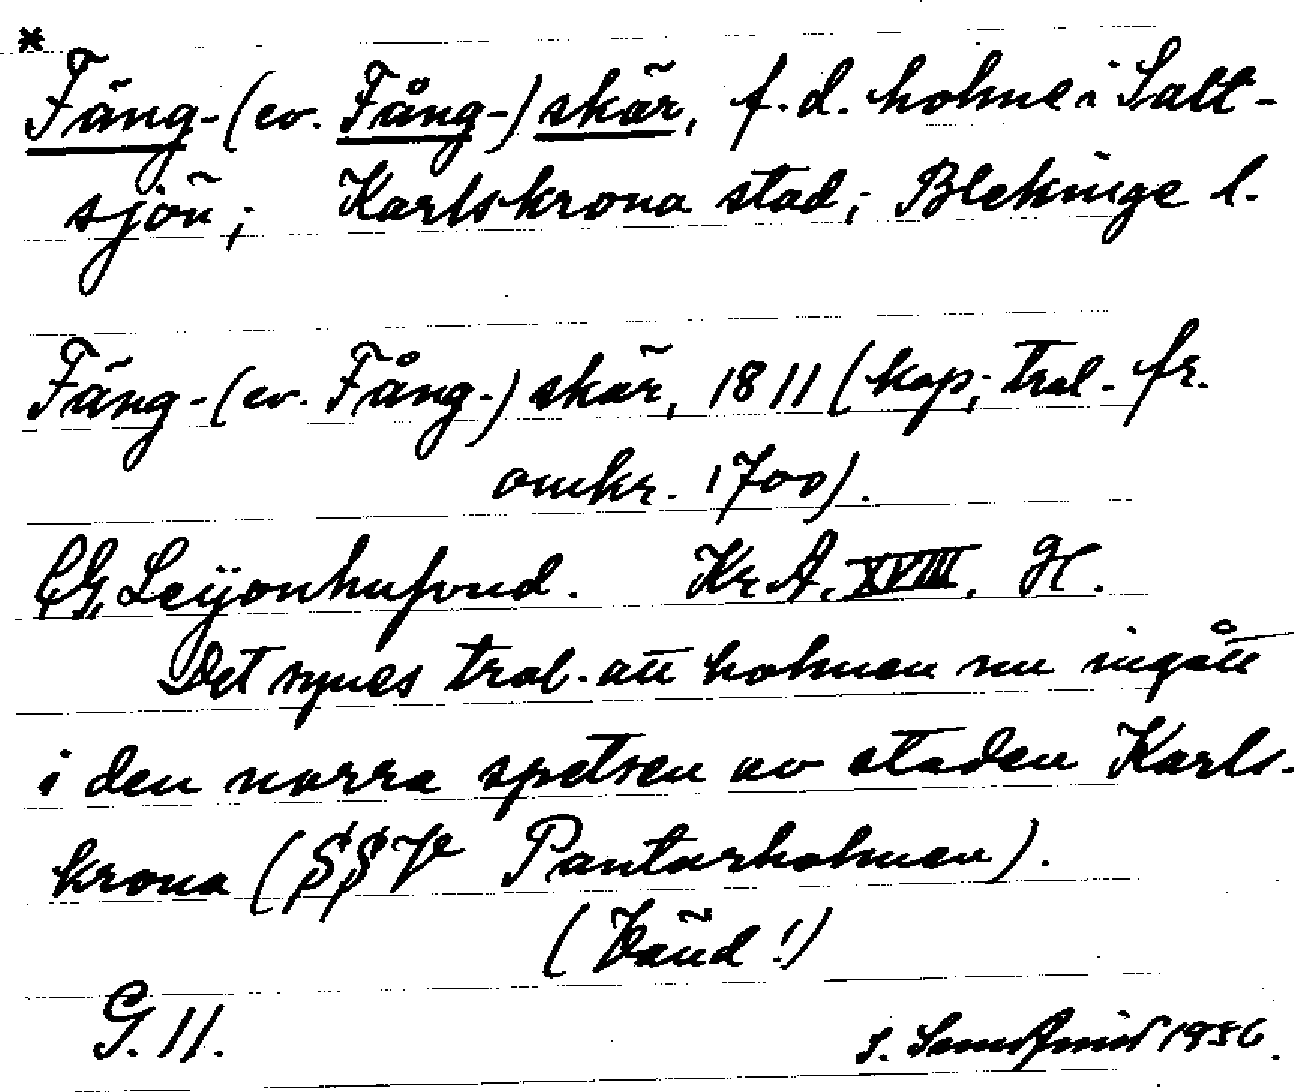 *
Fäng-(ev. Fång-) skär, f.d. holme i Salt-
sjön; Karlskrona stad; Blekinge l.
Fäng-(ev. Fång-) skär, 1811 (kop, trol. fr.
omkr. 1700).
CG Leijonhufvud. Kr A. XVIII. H.
Det synes trol. att holmen nu ingått
i den norra spetsen av staden Karls-
krona (SSV Pantarholmen).
(Vänd!)
G. 11. S. 1936.